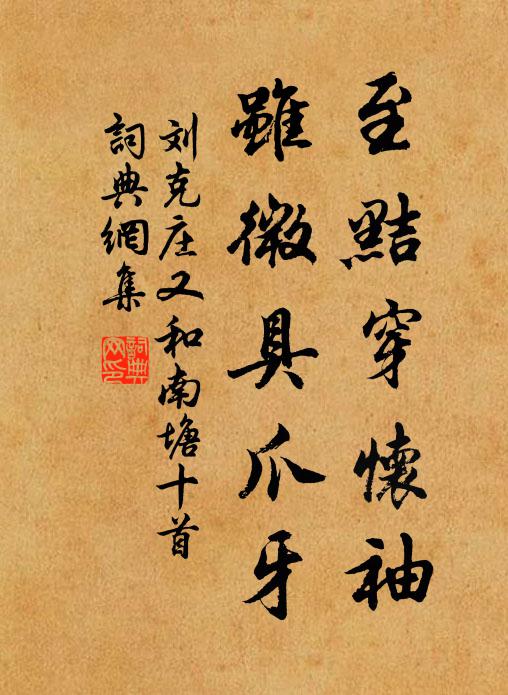 至黠穿懷袖
雖微具爪牙
刘克庄又和南塘十首
詞典網集
詞典网印